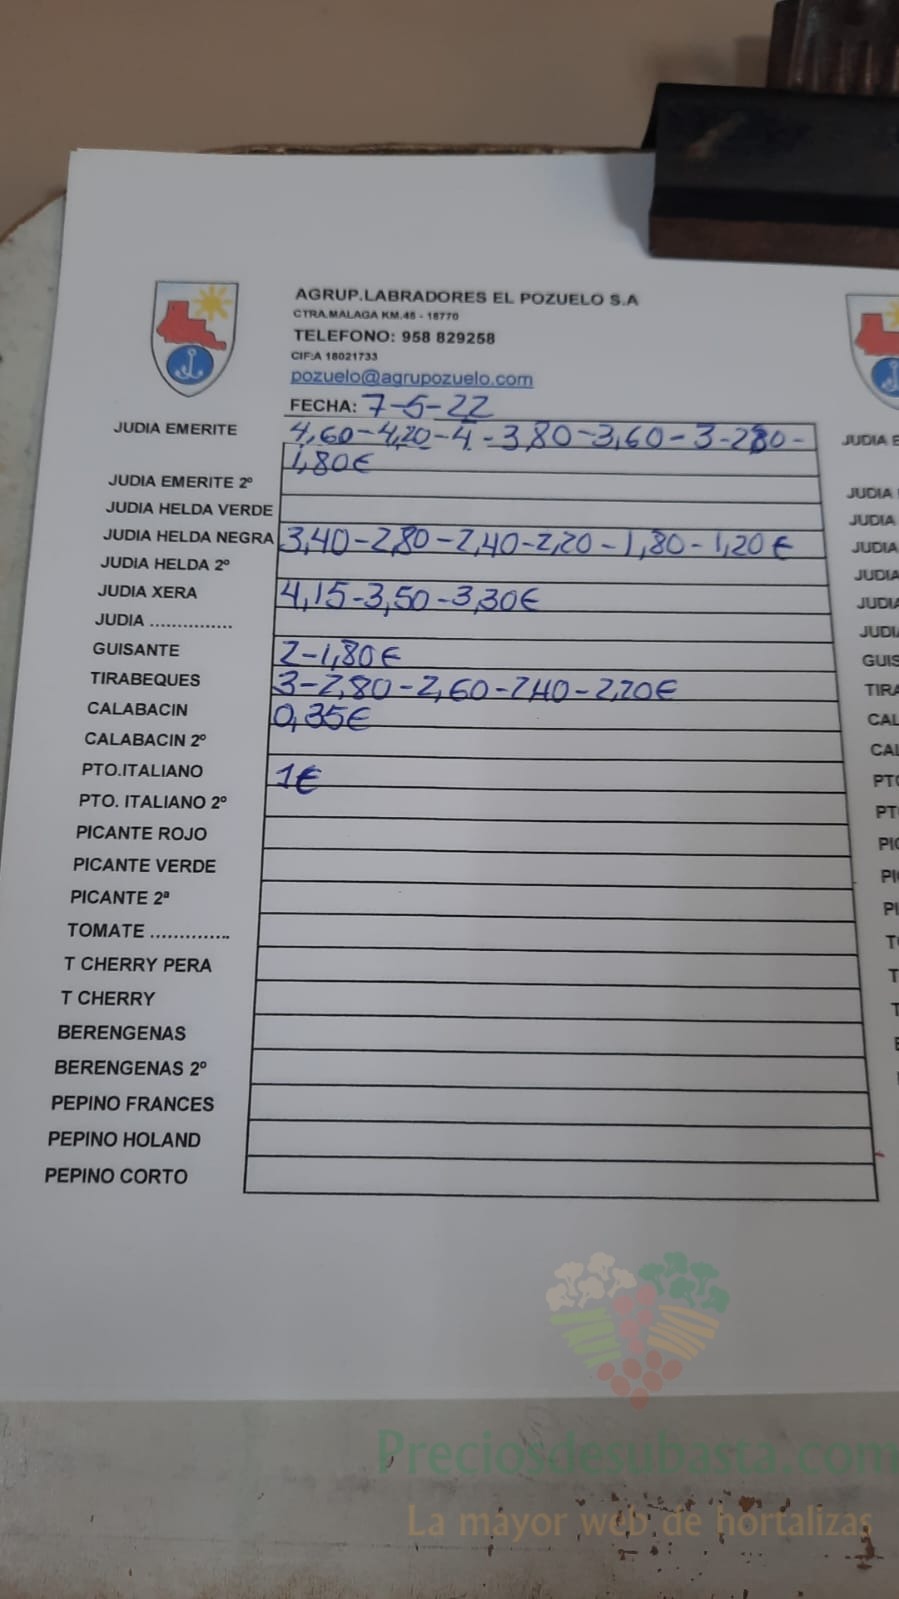 AGRUP.LABRADORES EL POZUELO S.A
CTRA.MALAGA KM.45 - 18770
TELEFONO: 958 829258
CIF:A 18021733
pozuelo@agrupozuelo.com
FECHA: 7-5-22
JUDIA EMERITE 4,60-4,20-4-3,80-3,60-3-2,80-
1,80€
JUDIA EMERITE 2º
JUDIA HELDA VERDE
JUDIA HELDA NEGRA 3,40-2,80-2,40-2,20-1,80-1,20€
JUDIA HELDA 2º
JUDIA XERA 4,15-3,50-3,30€
JUDIA ...............
GUISANTE 2-1,80€
TIRABEQUES 3-2,80-2,60-2,40-2,20€
CALABACIN 0,35€
CALABACIN 2º
PTO.ITALIANO 1€
PTO. ITALIANO 2º
PICANTE ROJO
PICANTE VERDE
PICANTE 2ª
TOMATE ..............
T CHERRY PERA
T CHERRY
BERENGENAS
BERENGENAS 2º
PEPINO FRANCES
PEPINO HOLAND
PEPINO CORTO
JUDIA E
JUDIA
JUDIA
JUDIA
JUDIA
JUDI
JUDI
GUIS
TIRA
CAL
CAL
PTO
PT
PIC
PI
PI
T
T
T
Preciosdesubasta.com
La mayor web de hortalizas